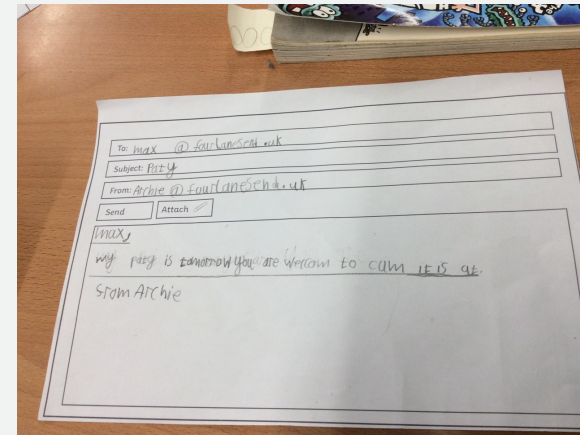 To: max @ fourlanesend.uk
Subject: Paty
From: Archie @ fourlanesend.uk
Send Attach
max,
my paty is tomorrow you are Wercom to cum it is at.
from Archie